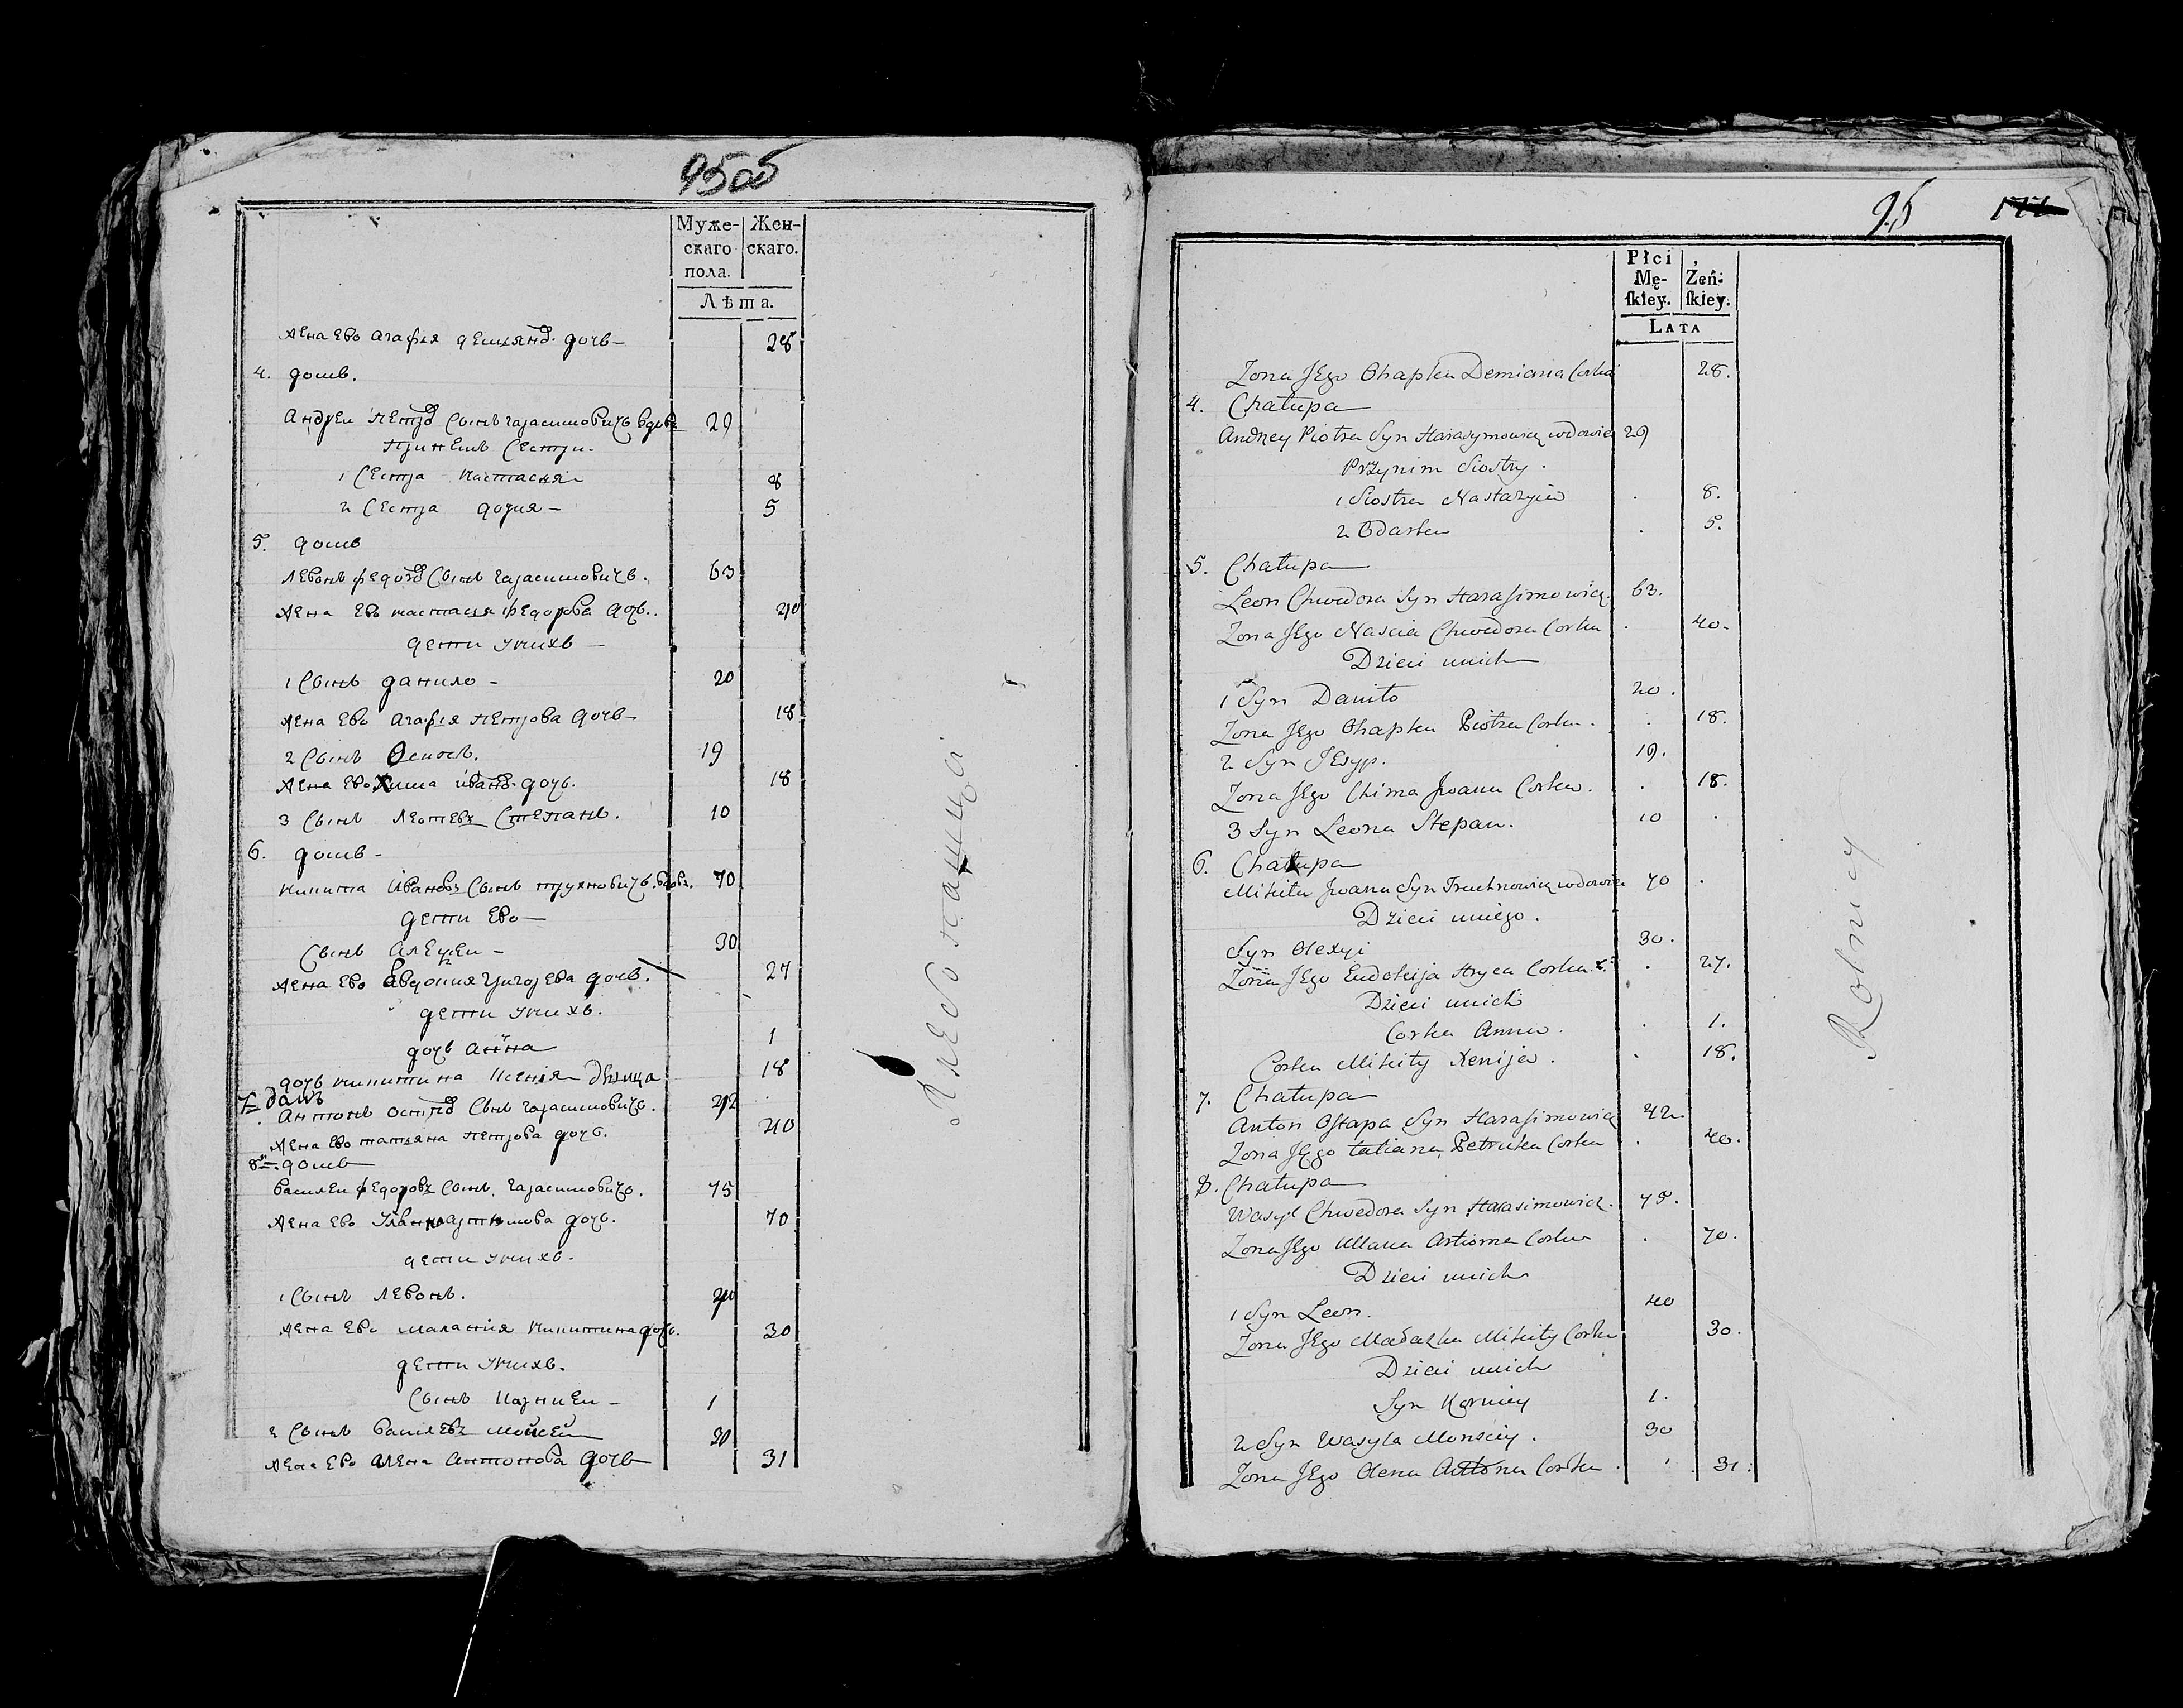 95об
Муже-
скаго
пола.
Жен-
скаго.
Лѣта.
Жена Ево Агафия демянов. дочь 28
4. домъ.
Андреи Петров Сынъ гарасимовичъ вдовъ 29
При немъ Сестри.
1 Сестра Настасия 8
2 Сестра дория 5
5. домъ
Левонъ федоров Сынъ гарасимовичъ. 63
Жена Ево настасия федорова доч. 40
дети у нихъ
1 Сынъ данило 20
Жена Ево Агафия петрова дочъ 18
2 Сынъ Осипъ. 19
Жена Ево Хима иванов. дочъ. 18
3 Сынъ Степанъ. 10
6. домъ
никита Ивановъ Сынъ трухновичъ. вдовъ. 70
дети Ево
Сынъ Алексеи 30
Жена Ево Евдокия григорева дочъ. 27
дети у нихъ.
дочъ анна 1
дочъ никитина Ксения дѣвица 18
7. домъ
Антонъ остапов Сынъ гарасимовичъ. 42
Жена Ево татяна петрова дочъ. 40
8. домъ
василеи федоровъ Сынъ. гарасимовичъ. 75
Жена Ево Улянна артиомова дочъ. 70
дети у нихъ.
1 Сынъ левонъ. 40
Жена Ево малания никитина дочъ. 30
дети у нихъ.
Сынъ Карниеи 1
2 Сынъ василевъ моисеи 30
Жена Ево алена антонова дочъ 31
Хлебопашцы
95
Płci
Mę-
ſkiey.
Żeń-
ſkiey.
LATA
Zona Jego Ohapka Demiana Corka 28.
4. Chałupa
Andrzey Piotra Syn Harasymowicz wdowiec 29
Przynim Siostry.
1 Siostra Nastazyia 8.
2 Odarka 5.
5. Chałupa
Leon Chwedora Syn Harasimowicz. 63.
Zona Jego Nascia Chwedora Corka 40.
Dzieci unich
1 Syn Daniło 20.
Zona Jego Ohapka Piotra Corka. 18.
2 Syn Jesyp. 19.
Zona Jego Chima Jwana Corka. 18.
3 Syn Leona Stepan. 10
6. Chałupa
Mikita Jwana Syn Truchnowicz wdowiec 70
Dzieci uniego.
Syn Olexyi 30.
Zona Jego Eudokija Hryca Corka 27.
Dzieci unich
Corka Anna. 1.
Corka Mikity Xenija. 18.
7. Chałupa
Anton Ostapa Syn Harasimowicz 42.
Zona Jego tatiana Petruka Corka 40.
8. Chałupa
Wasyl Chwedora Syn Harasimowicz. 75.
Zona Jego Ullana Artioma Corka 70.
Dzieci unich
1 Syn Leon. 40
Zona Jego Małazka Mikity Corka 30.
Dzieci unich
Syn Korniey 1.
2 Syn Wasyla Monsiey. 30
Zona Jego Olena Antona Corka. 31.
Rolnicy